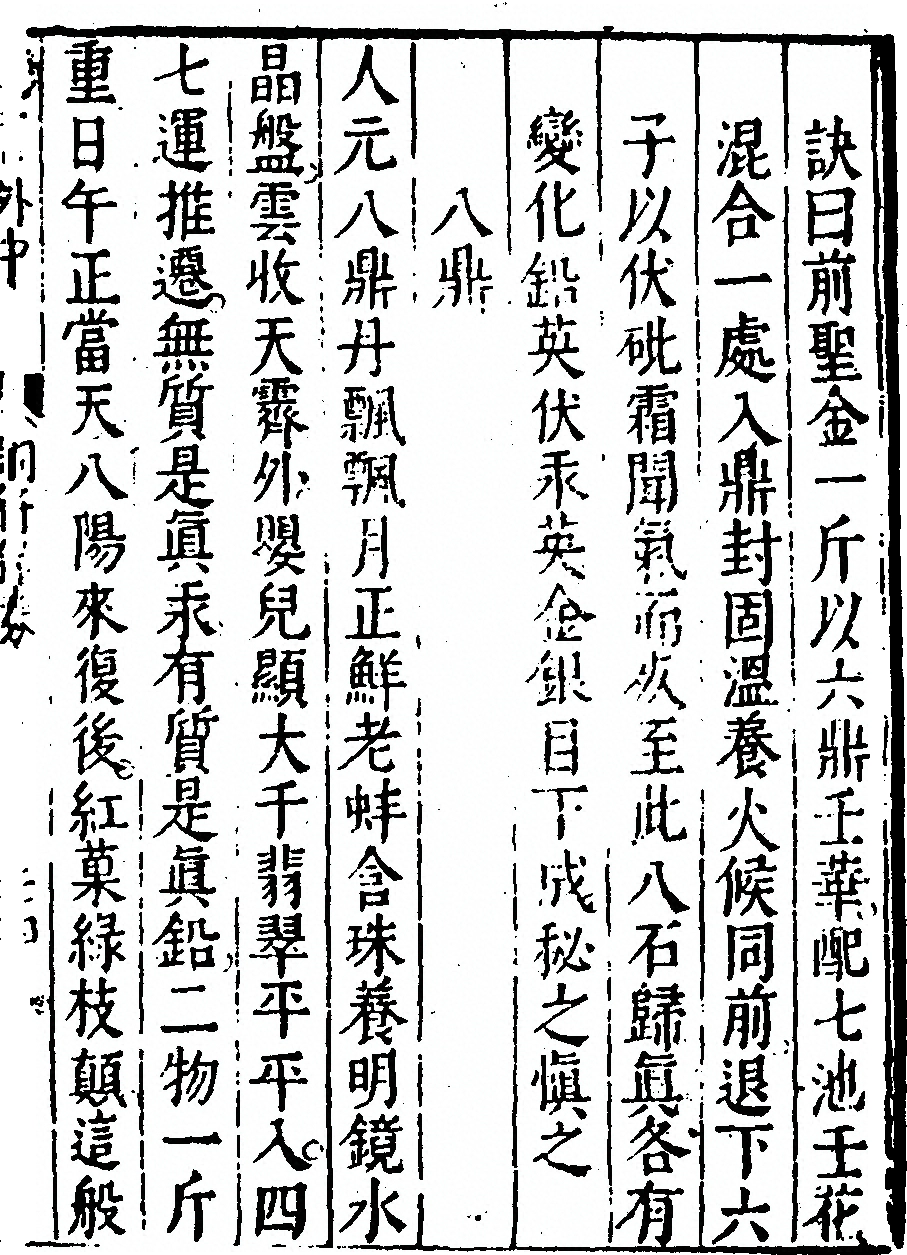 訣曰前聖金一斤以六鼎壬華配七池壬花
混合一處入鼎封固溫養火候同前退下六
子以伏砒霜聞氣而死至此八石歸眞各有
變化鉛英伏汞英金銀目下成秘之慎之
八鼎
人元八鼎丹飄飄月正鮮老蚌含珠養明鏡水
晶盤雲收天霽外嬰兒顯大千翡翠平平入四
七運推遷無質是眞汞有質是眞鉛二物一斤
重日午正當天八陽來復後紅菓綠枝顛這般